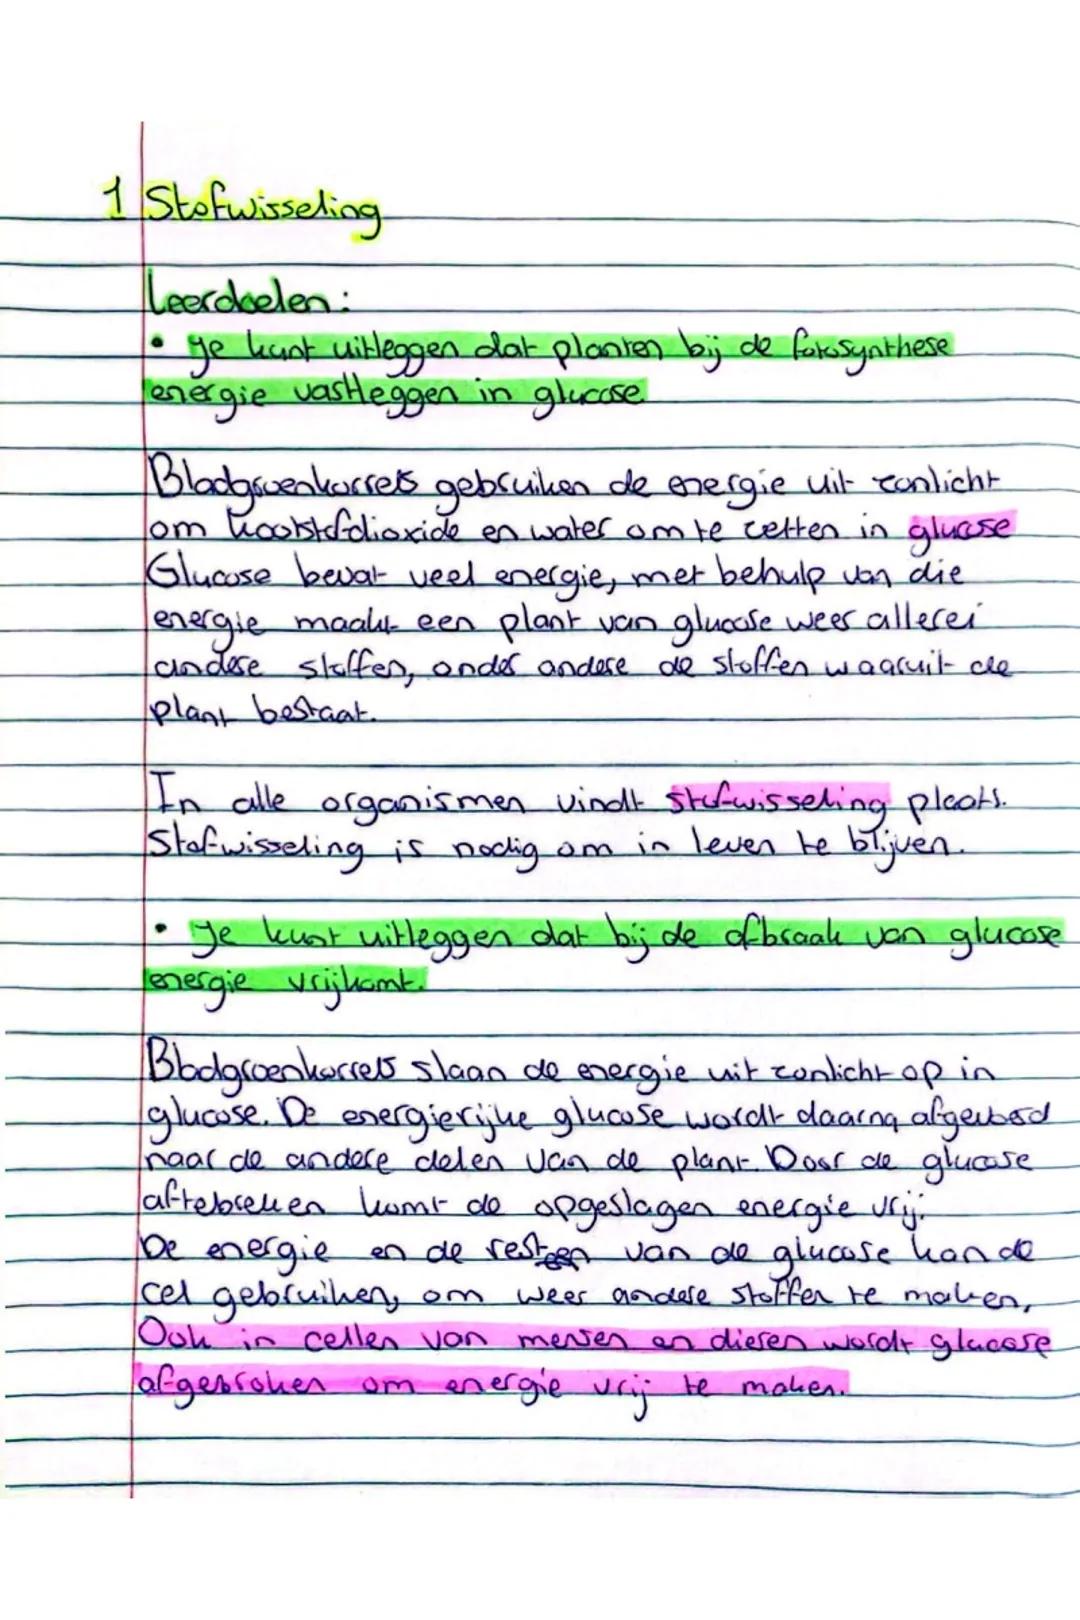 1 Stofwisseling
Leerdoelen:
• Je kunt uitleggen dat planten bij de fotosynthese
energie vastleggen in glucose.
Bladgroenkorrels gebruiken de energie uit zonlicht
om koolstofdioxide en water om te zetten in glucose
Glucose bevat veel energie, met behulp van die
energie maakt een plant van glucose weer allerei
andere stoffen, onder andere de stoffen waaruit de
plant bestaat.
In alle organismen vindt stofwisseling plaats.
Stofwisseling is nodig om in leven te blijven.
• Je kunt uitleggen dat bij de afbraak van glucose
energie vrijkomt.
Bladgroenkorrels slaan de energie uit zonlicht op in
glucose. De energierijke glucose wordt daarna afgevoerd
naar de andere delen van de plant. Door de glucose
af te breken komt de opgeslagen energie vrij.
De energie en de resten van de glucose kan de
cel gebruiken, om weer andere stoffen te maken,
Ook in cellen van mensen en dieren wordt glucose
afgebroken om energie vrij te maken.